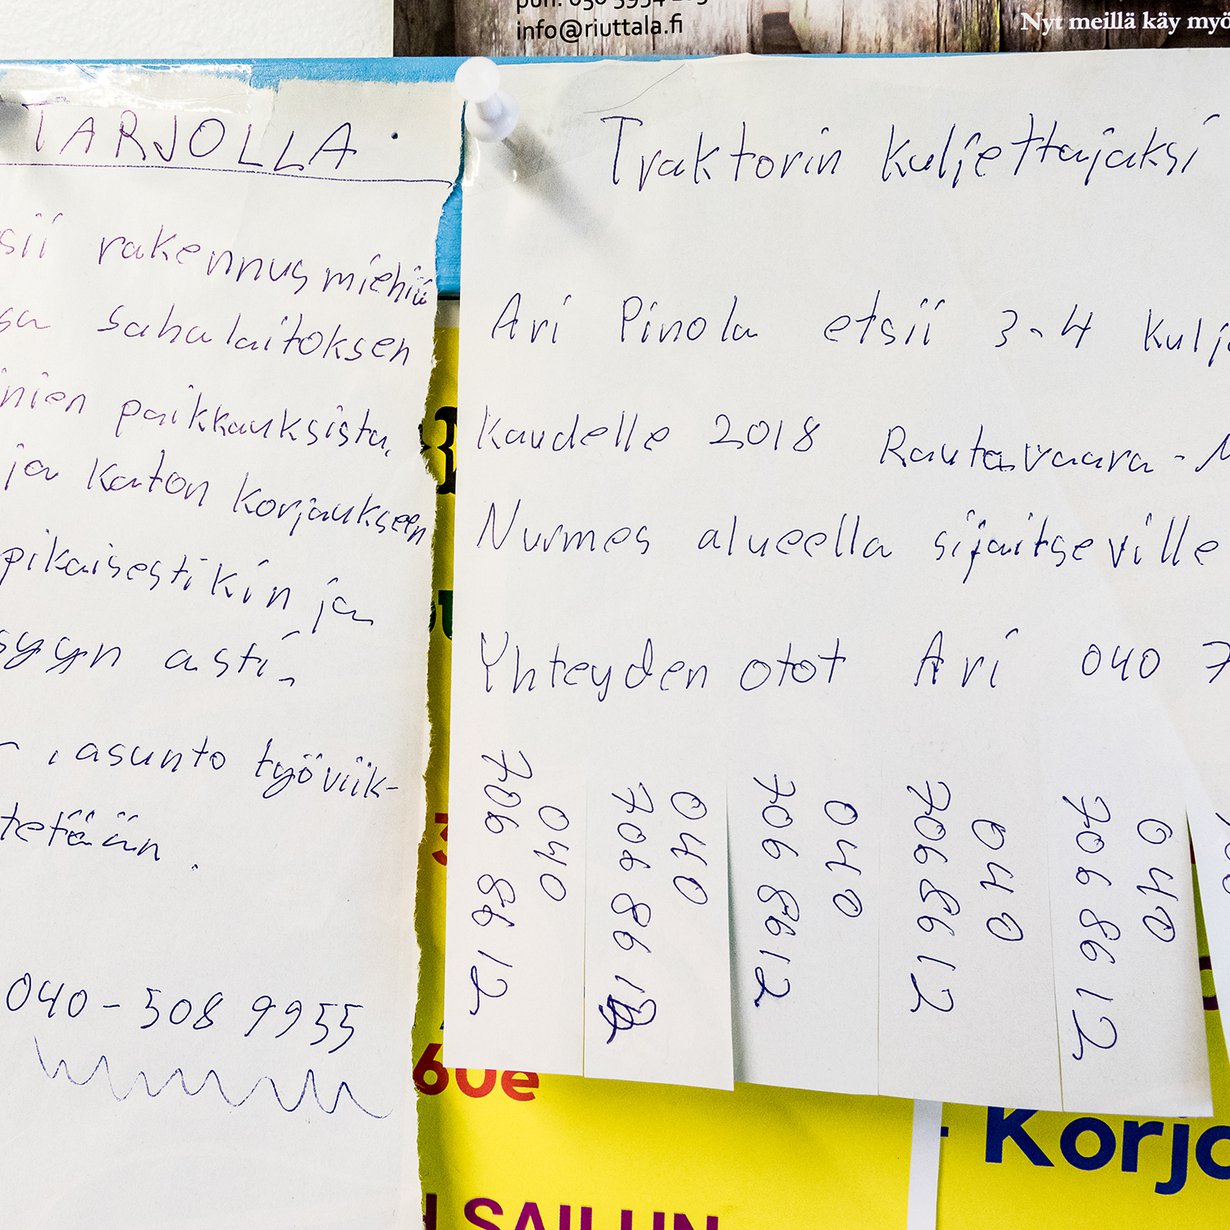 info@riuttala.fi
Nyt meillä käy myö
TARJOLLA.
sii rakennusmiehiä
sa sahalaitoksen
nien paikkauksista,
ja katon korjaukseen
pikaisestikin ja
syyn asti.
, asunto työviik-
tetään.
040-508 9955
Traktorin kuljettajaksi
Ari Pinola etsii 3-4 kulj
Kaudelle 2018 Rautavaara-
Nurmes alueella sijaitseville
Yhteyden otot Ari 040 7
040
706 8612
040
706 8612
040
706 8612
040
706 8612
040
706 8612
60e
Korjo
SAILUN